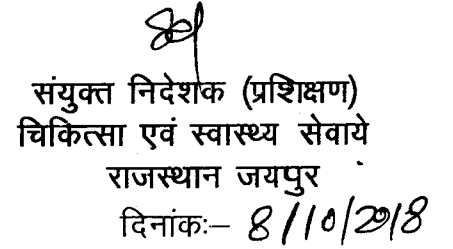 संयुक्त निदेशक (प्रशिक्षण)
चिकित्सा एवं स्वास्थ्य सेवाये
राजस्थान जयपुर
दिनांकः– 8/10/2018